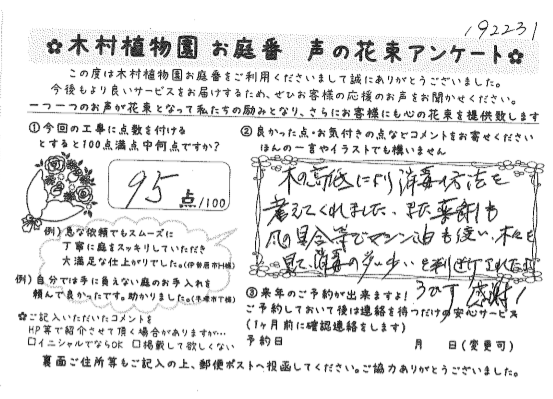 192231
✿木村植物園 お庭番 声の花束アンケート✿
この度は木村植物園お庭番をご利用くださいまして誠にありがとうございました。
今後もより良いサービスをお届けするため、ぜひお客様の応援のお声をお聞かせください。
一つ一つのお声が花束となって私たちの励みとなり、さらにお客様にも心の花束を提供致します
①今回の工事に点数を付ける
とすると100点満点中何点ですか?
95点/100
例)急な依頼でもスムーズに
丁寧に庭をスッキリしていただき
大満足な仕上がりでした。(伊勢原市H様)
例)自分では手に負えない庭のお手入れを
頼んで良かったです。助かりました。(平塚市T様)
✿ご記入いただいたコメントを
HP等で紹介させて頂く場合がありますが…
□イニシャルでならOK □掲載して欲しくない
②良かった点・お気付きの点などコメントをお寄せください
ほんの一言やイラストでも構いません
木の高低により消毒の方法を
考えてくれました、また薬剤も
風の具合等でマシン油も使い、木々を
見て、消毒の多い少いを判断
感謝!
③来年のご予約が出来ますよ!
ご予約しておいて後は連絡を待つだけの安心サービス
(1ヶ月前に確認連絡をします)
予約日 月 日(変更可)
裏面ご住所等もご記入の上、郵便ポストへ投函してください。ご協力ありがとうございました。